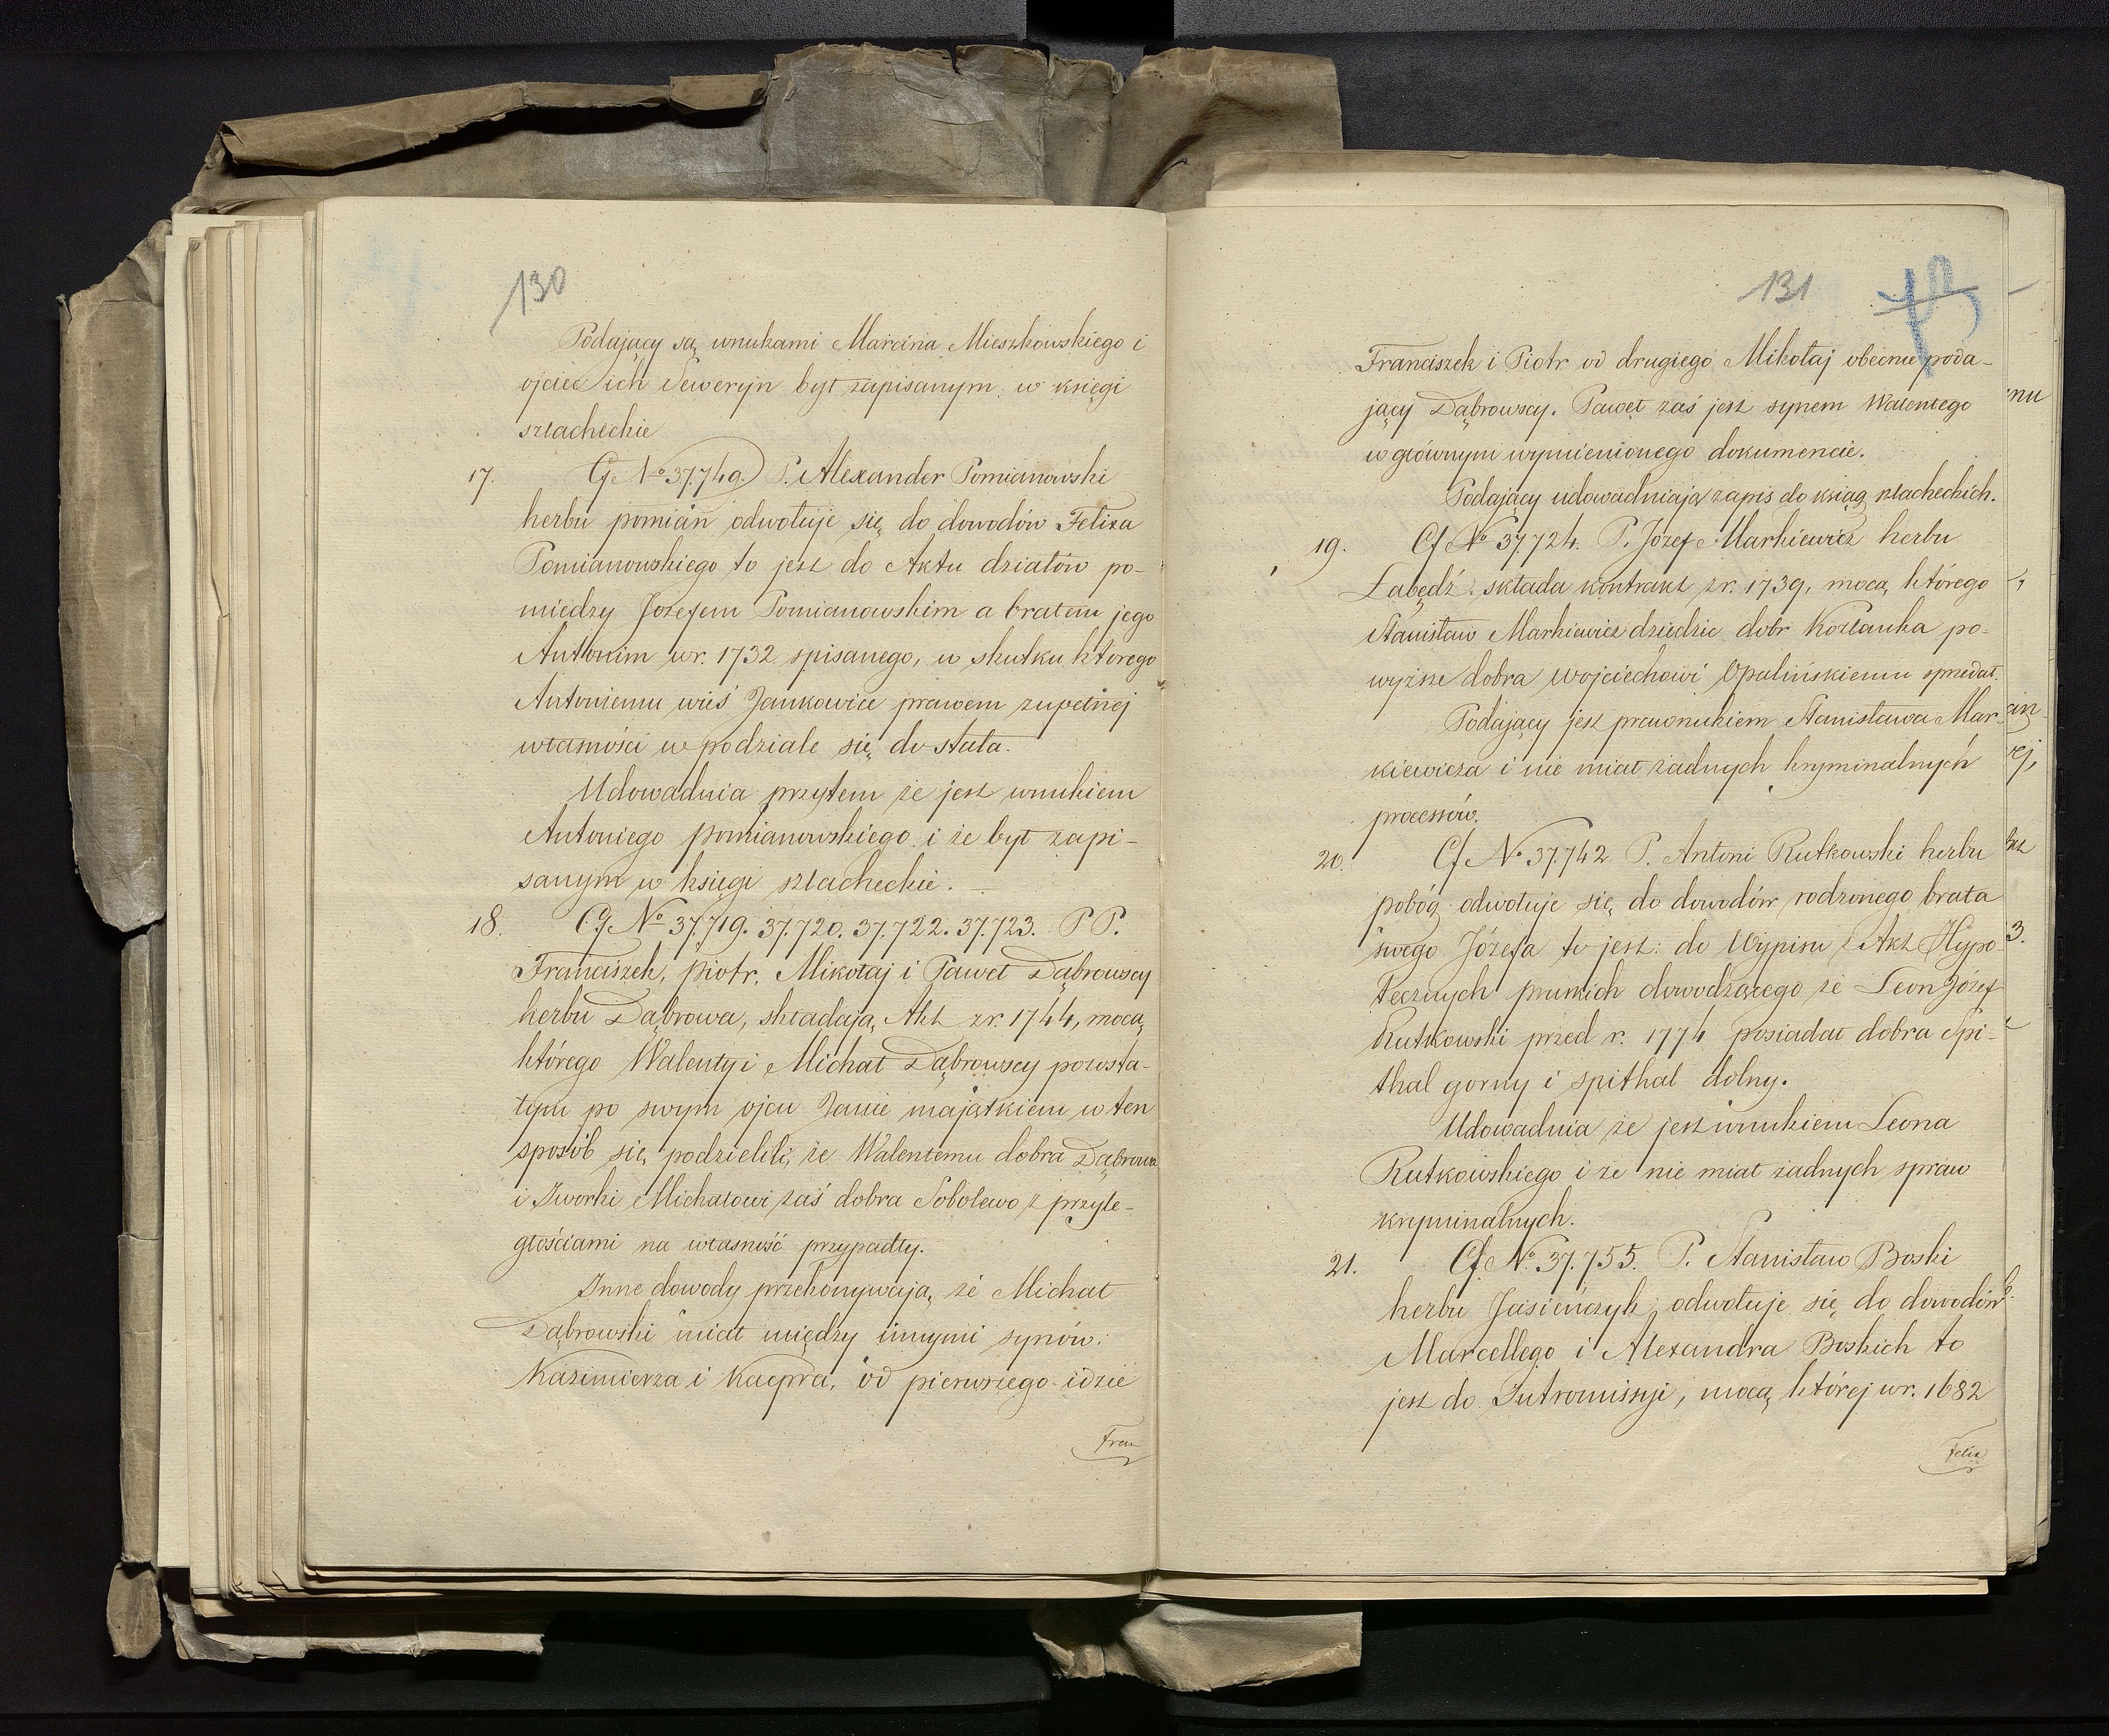 130
Podający są wnukami Marcina Mieszkowskiego i
ojciec ich Seweryn był zapisanym w księgi
szlacheckie
17. Cf № 37.749. P. Alexander Pomianowski
herbu pomian odwołuje się do dowodów Felixa
Pomianowskiego to jest do Aktu działów po-
miedzy Jozefem Pomianowskim a bratem jego
Antonim w r. 1732 spisanego, w skutku którego
Antoniemu wieś Jankowice prawem zupełnej
własności w podziale się do stała.
Udowadnia przytem że jest wnukiem
Antoniego pomianowskiego i że był zapi-
sanym w księgi szlacheckie. —
18. Cf № 37.719. 37.720. 37.722. 37.723. PP.
Franciszek, Piotr, Mikołaj i Paweł Dąbrowscy
herbu Dąbrowa, składają Akt z r. 1744, mocą
którego Walenty i Michał Dąbrowscy pozosta-
łym po swym ojcu Janie majątkiem w ten
sposób się podzielili, że Walentemu dobra Dąbrowa
i Dworki Michałowi zaś dobra Sobolewo z przyle-
głościami na własność przypadły.
Inne dowody przekonywają, że Michał
Dąbrowski miał między innymi synów:
Kazimierza i Kacpra, od pierwszego idzie
Fran
131
Franciszek i Piotr od drugiego Mikołaj obecnie poda-
jący Dąbrowscy. Paweł zaś jest synem Walentego
w głównym wymienionego dokumencie.
Podający udowadniają zapis do ksiąg szlacheckich.
19. Cf № 37.724. P. Józef Markiewicz herbu
Łabędź składa kontrakt z r. 1739, mocą którego
Stanisław Markiewicz dziedzic dobr Kozlanka po-
wyższe dobra Wojciechowi Opalińskiemu sprzedał.
Podający jest prawnukiem Stanisława Mar-
kiewicza i nie miał żadnych kryminalnych
processów.
20. Cf № 37.742 P. Antoni Rutkowski herbu
pobóg odwołuje się do dowodów rodzonego brata
swego Józefa to jest: do Wypisu z Akt Hypo-
tecznych pruskich dowodzącego że Leon Józef
Rutkowski przed r. 1774 posiadał dobra Spi-
thal gorny i spithal dolny.
Udowadnia że jest wnukiem Leona
Rutkowskiego i że nie miał żadnych spraw
kryminalnych.
21. Cf № 37.755. P. Stanisław Boski
herbu Jasieńczyk odwołuje się do dowodów
Marcellego i Alexandra Boskich to
jest do Intromissyi, mocą której w r. 1682
Felix